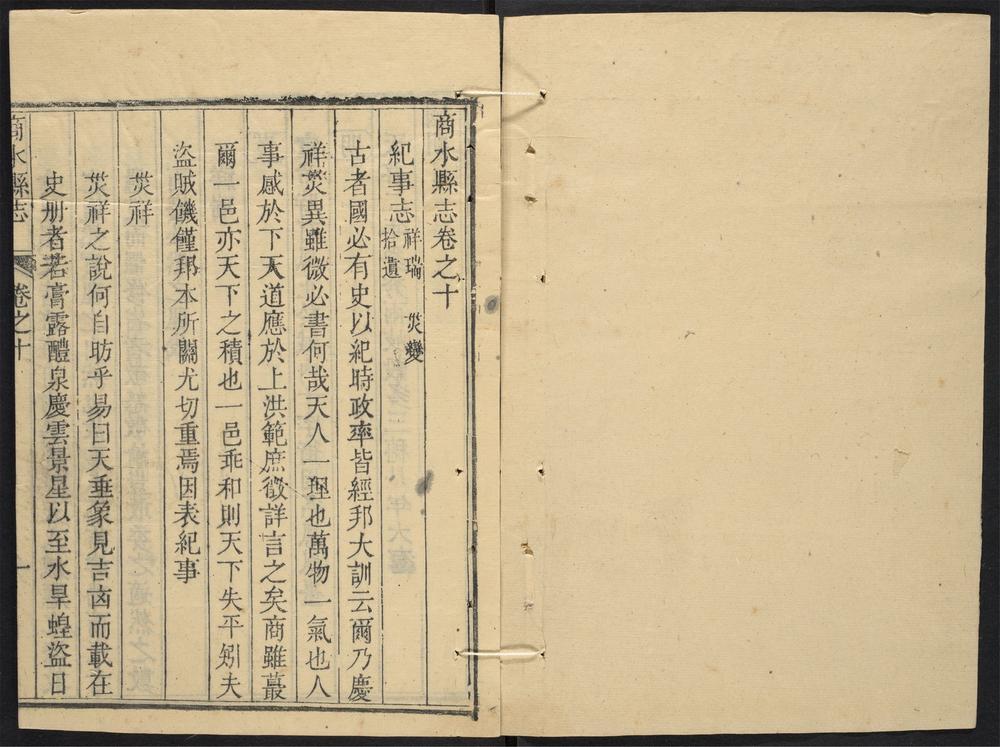 商水縣志卷之十
紀事志 祥瑞 災變 拾遺
古者國必有史以紀時政率皆經邦大訓云爾乃慶
祥災異雖微必書何哉天人一理也萬物一氣也人
事感於下天道應於上洪範庶徵詳言之矣商雖蕞
爾一邑亦天下之積也一邑乖和則天下失平矧夫
盜賊饑僅邦本所關尤切重焉因表紀事
災祥
災祥之說何自昉乎易曰天垂象見吉凶而載在
史册者若膏露醴泉慶雲景星以至水旱蝗盜日
商水縣志 卷之十 一